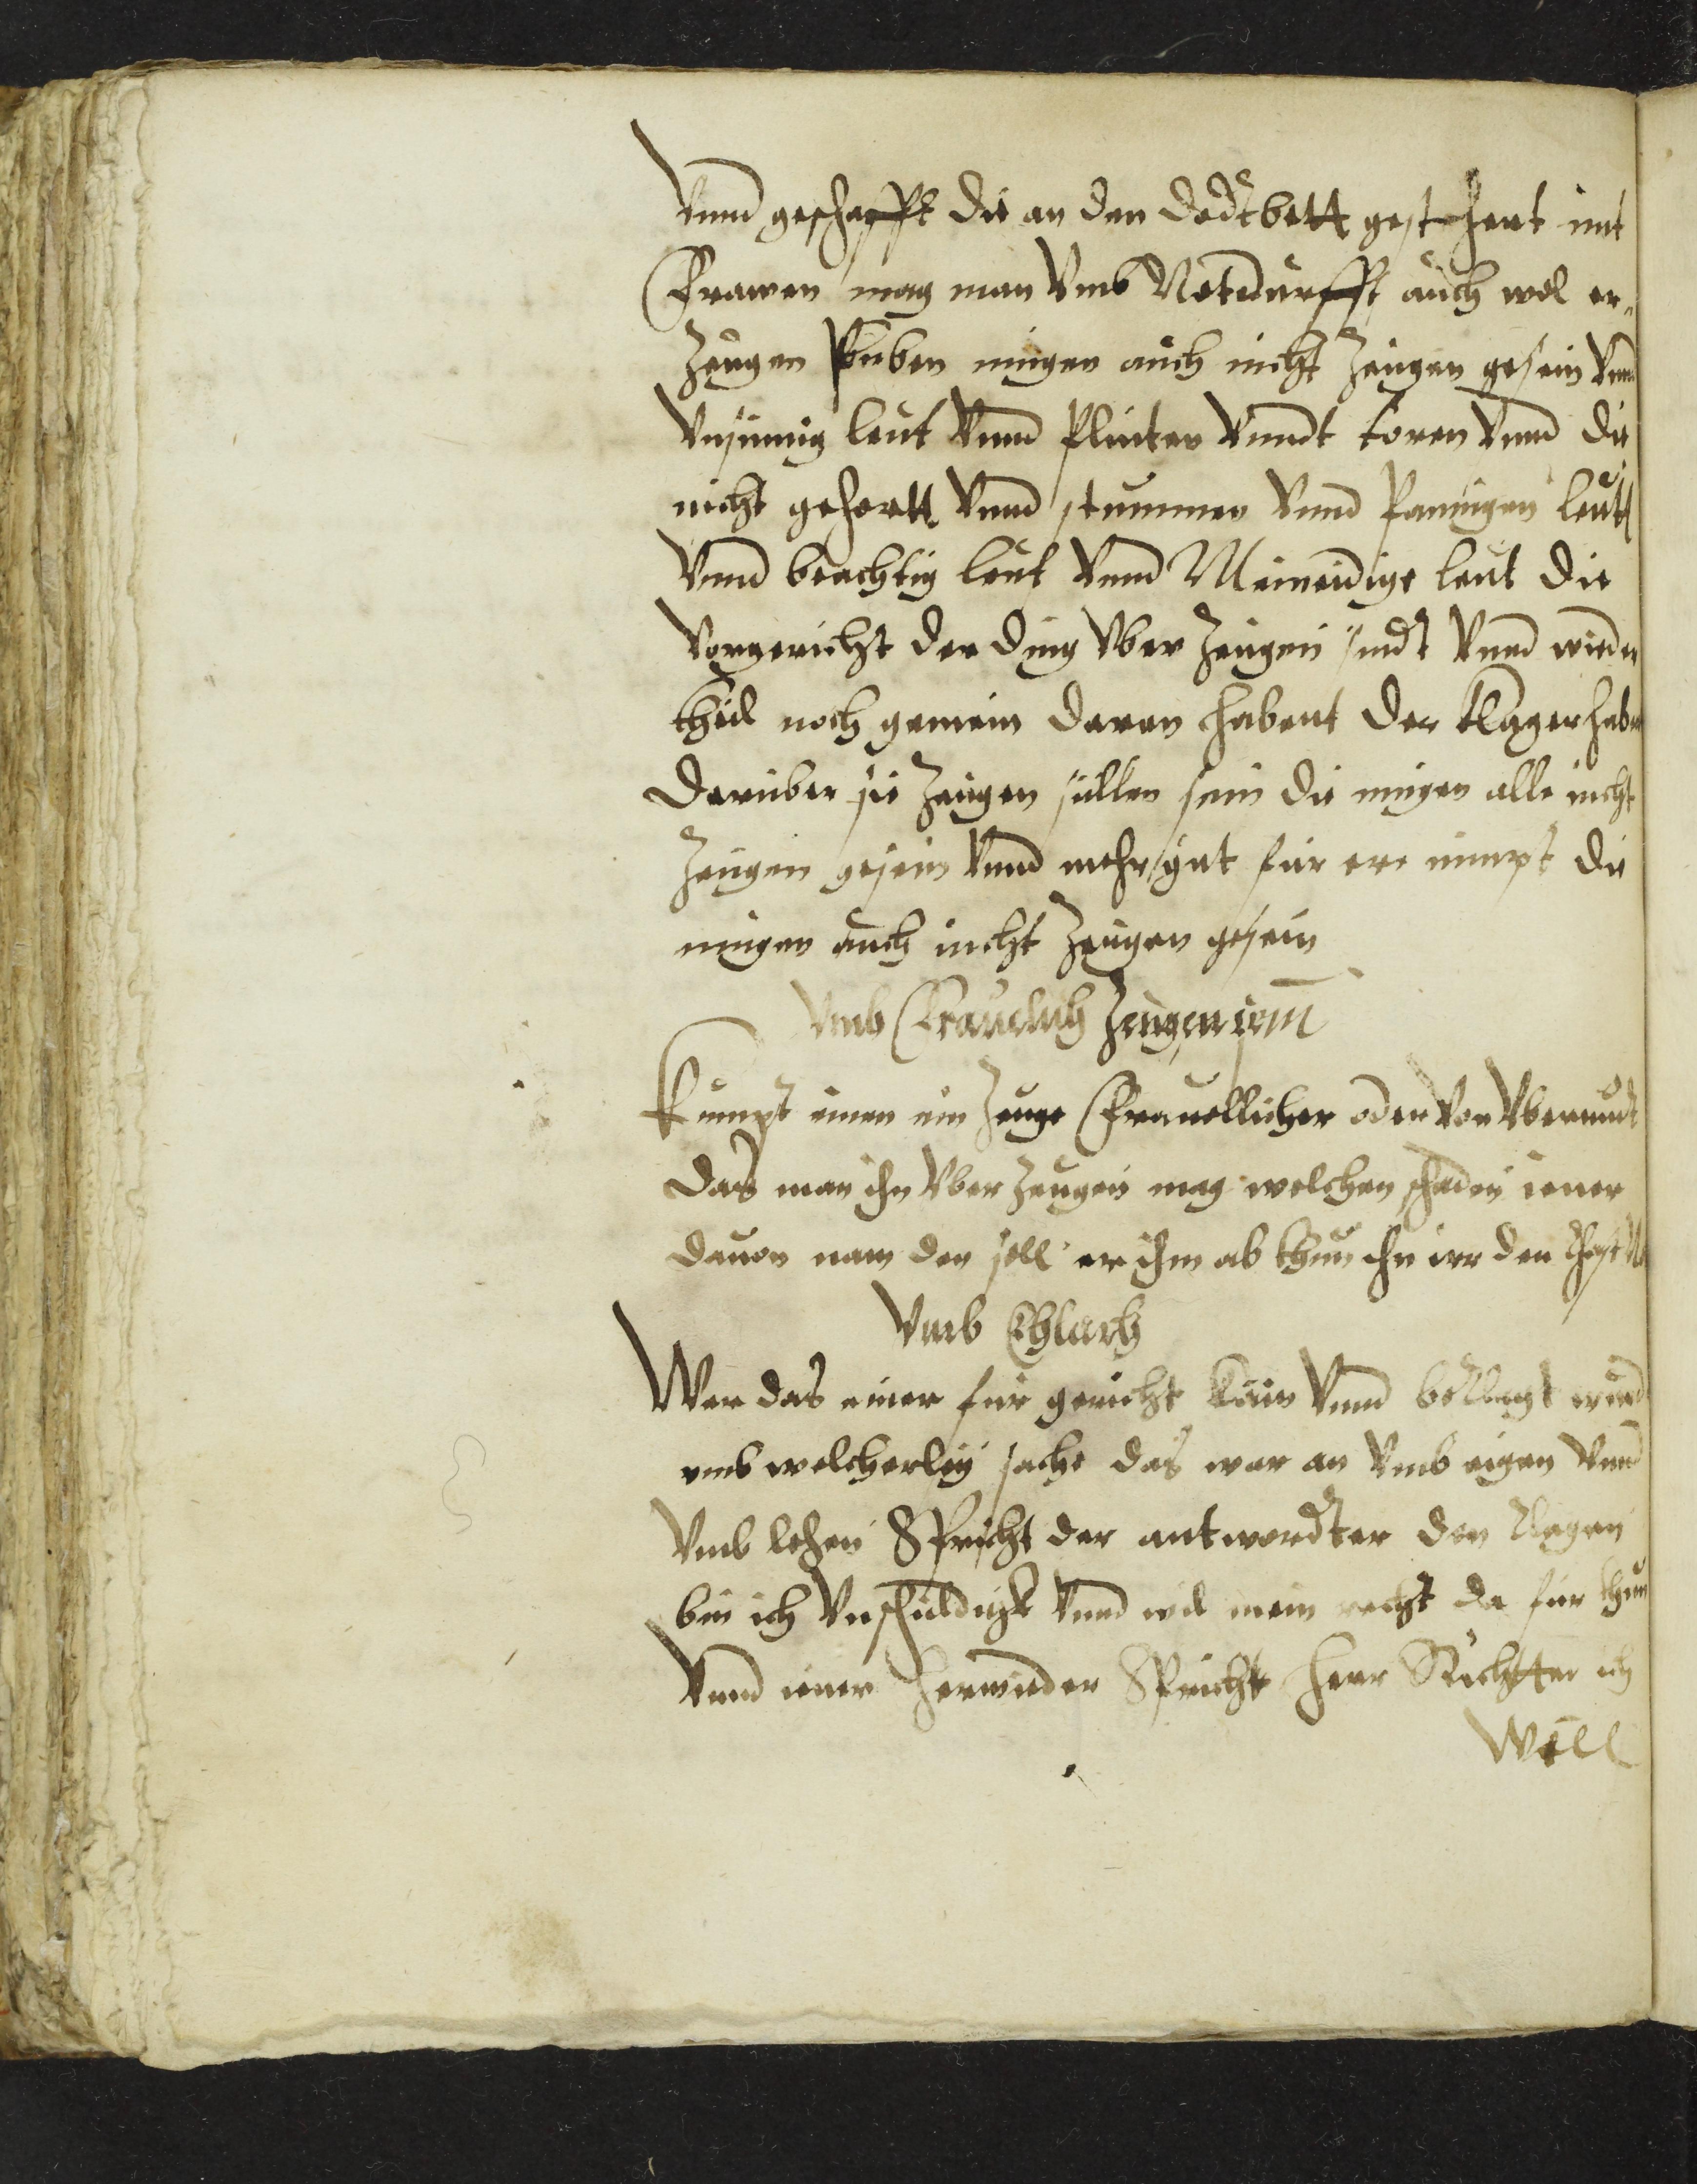 Vnnd geschefft die an den dodtbett geschent mit
Frawen mag man Vmb Notturfft auch wol er„
Zeugen Buben mügen auch nicht Zeugen gesein Vnnd
Vnsinnig leut Vnnd Plinter Vnndt toren Vnnd die
nicht gehortt Vnnd stummen Vnnd Pannigen leutt
Vnnd beachtig leut Vnnd Meineidige leut die
Vorgericht der ding Vber Zeugen sindt Vnnd wieder
theil noch gemein daran habent der Klager habe
Darüber sie Zeugen süllen sein die mügen alle nicht
Zeugen gesein Vnnd mehr gut für ere nimpt die
mügen auch nicht Zeugen gesein
Vmb Frauelich Zeugen
Kumpt einer ein Zeuge Frauellicher oder Von Vbermudt
das man ihn Vber Zeugen mag welchen schaden iener
dauon nam den soll er ihm ab thun
Vmb Chlag
Wer das einer für gericht kum Vnnd beklagt wurd
vmb welcherley sache das war an Vmb eigen Vnnd
Vmb lehen Spricht der antwordter den klagen
bin ich Vnschuldigk Vnnd wil mein recht da für thun
Vnnd iener herwieder Spricht Herr Richtter ich
Will